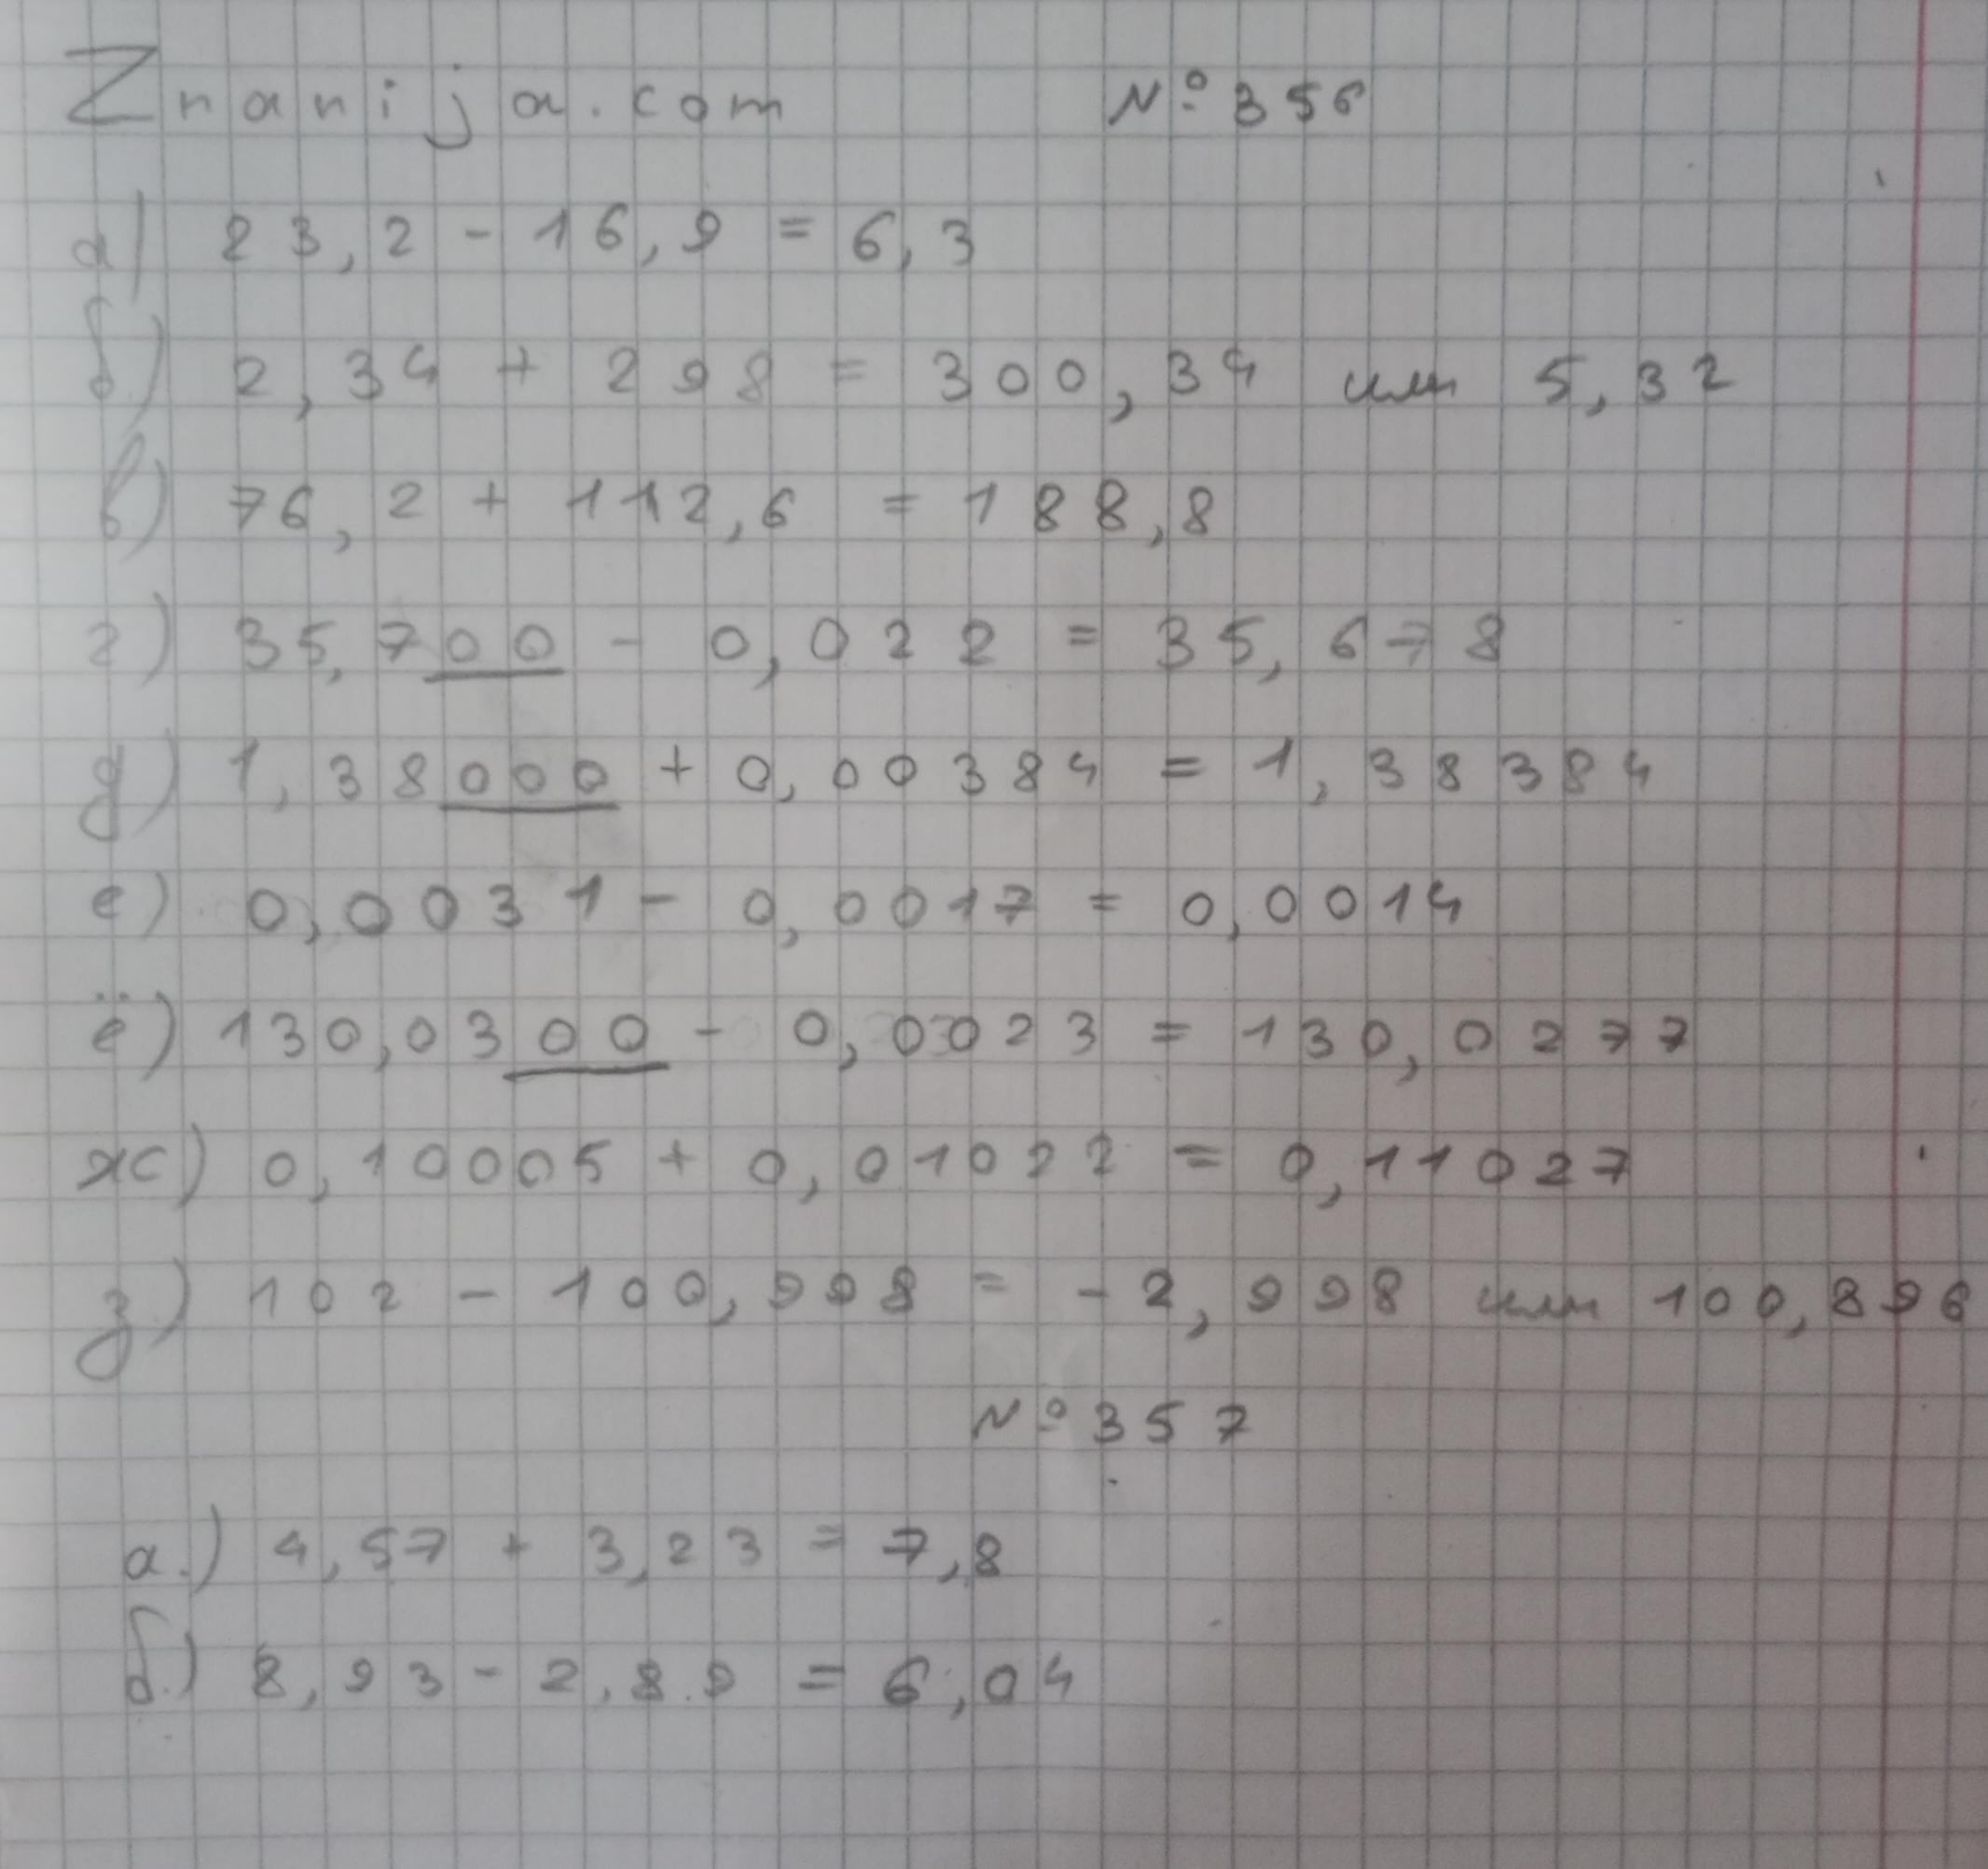 Znanija.com № 356
а) 23,2 - 16,9 = 6,3
б) 2,34 + 298 = 300,34 или 5,32
в) 76,2 + 112,6 = 188,8
г) 35,700 - 0,022 = 35,678
д) 1,38000 + 0,00384 = 1,38384
е) 0,0031 - 0,0017 = 0,0014
ё) 130,0300 - 0,0023 = 130,0277
ж) 0,10005 + 0,01022 = 0,11027
з) 102 - 100,998 = -2,998 или 100,896
№ 357
а.) 4,57 + 3,23 = 7,8
б.) 8,93 - 2,89 = 6,04